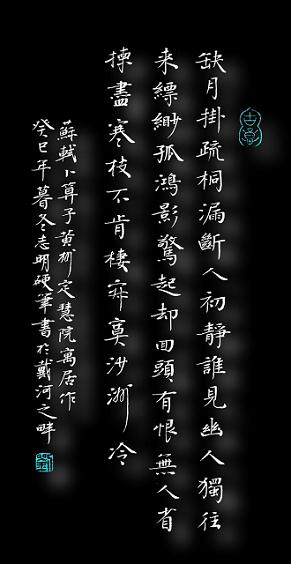 缺月掛疏桐漏斷人初靜誰見幽人獨往
来縹緲孤鴻影驚起却回頭有恨無人省
揀盡寒枝不肯棲寂寞沙洲冷
蘇軾卜算子黄州定慧院寓居作
癸巳年暮冬志明硬筆書於戴河之畔